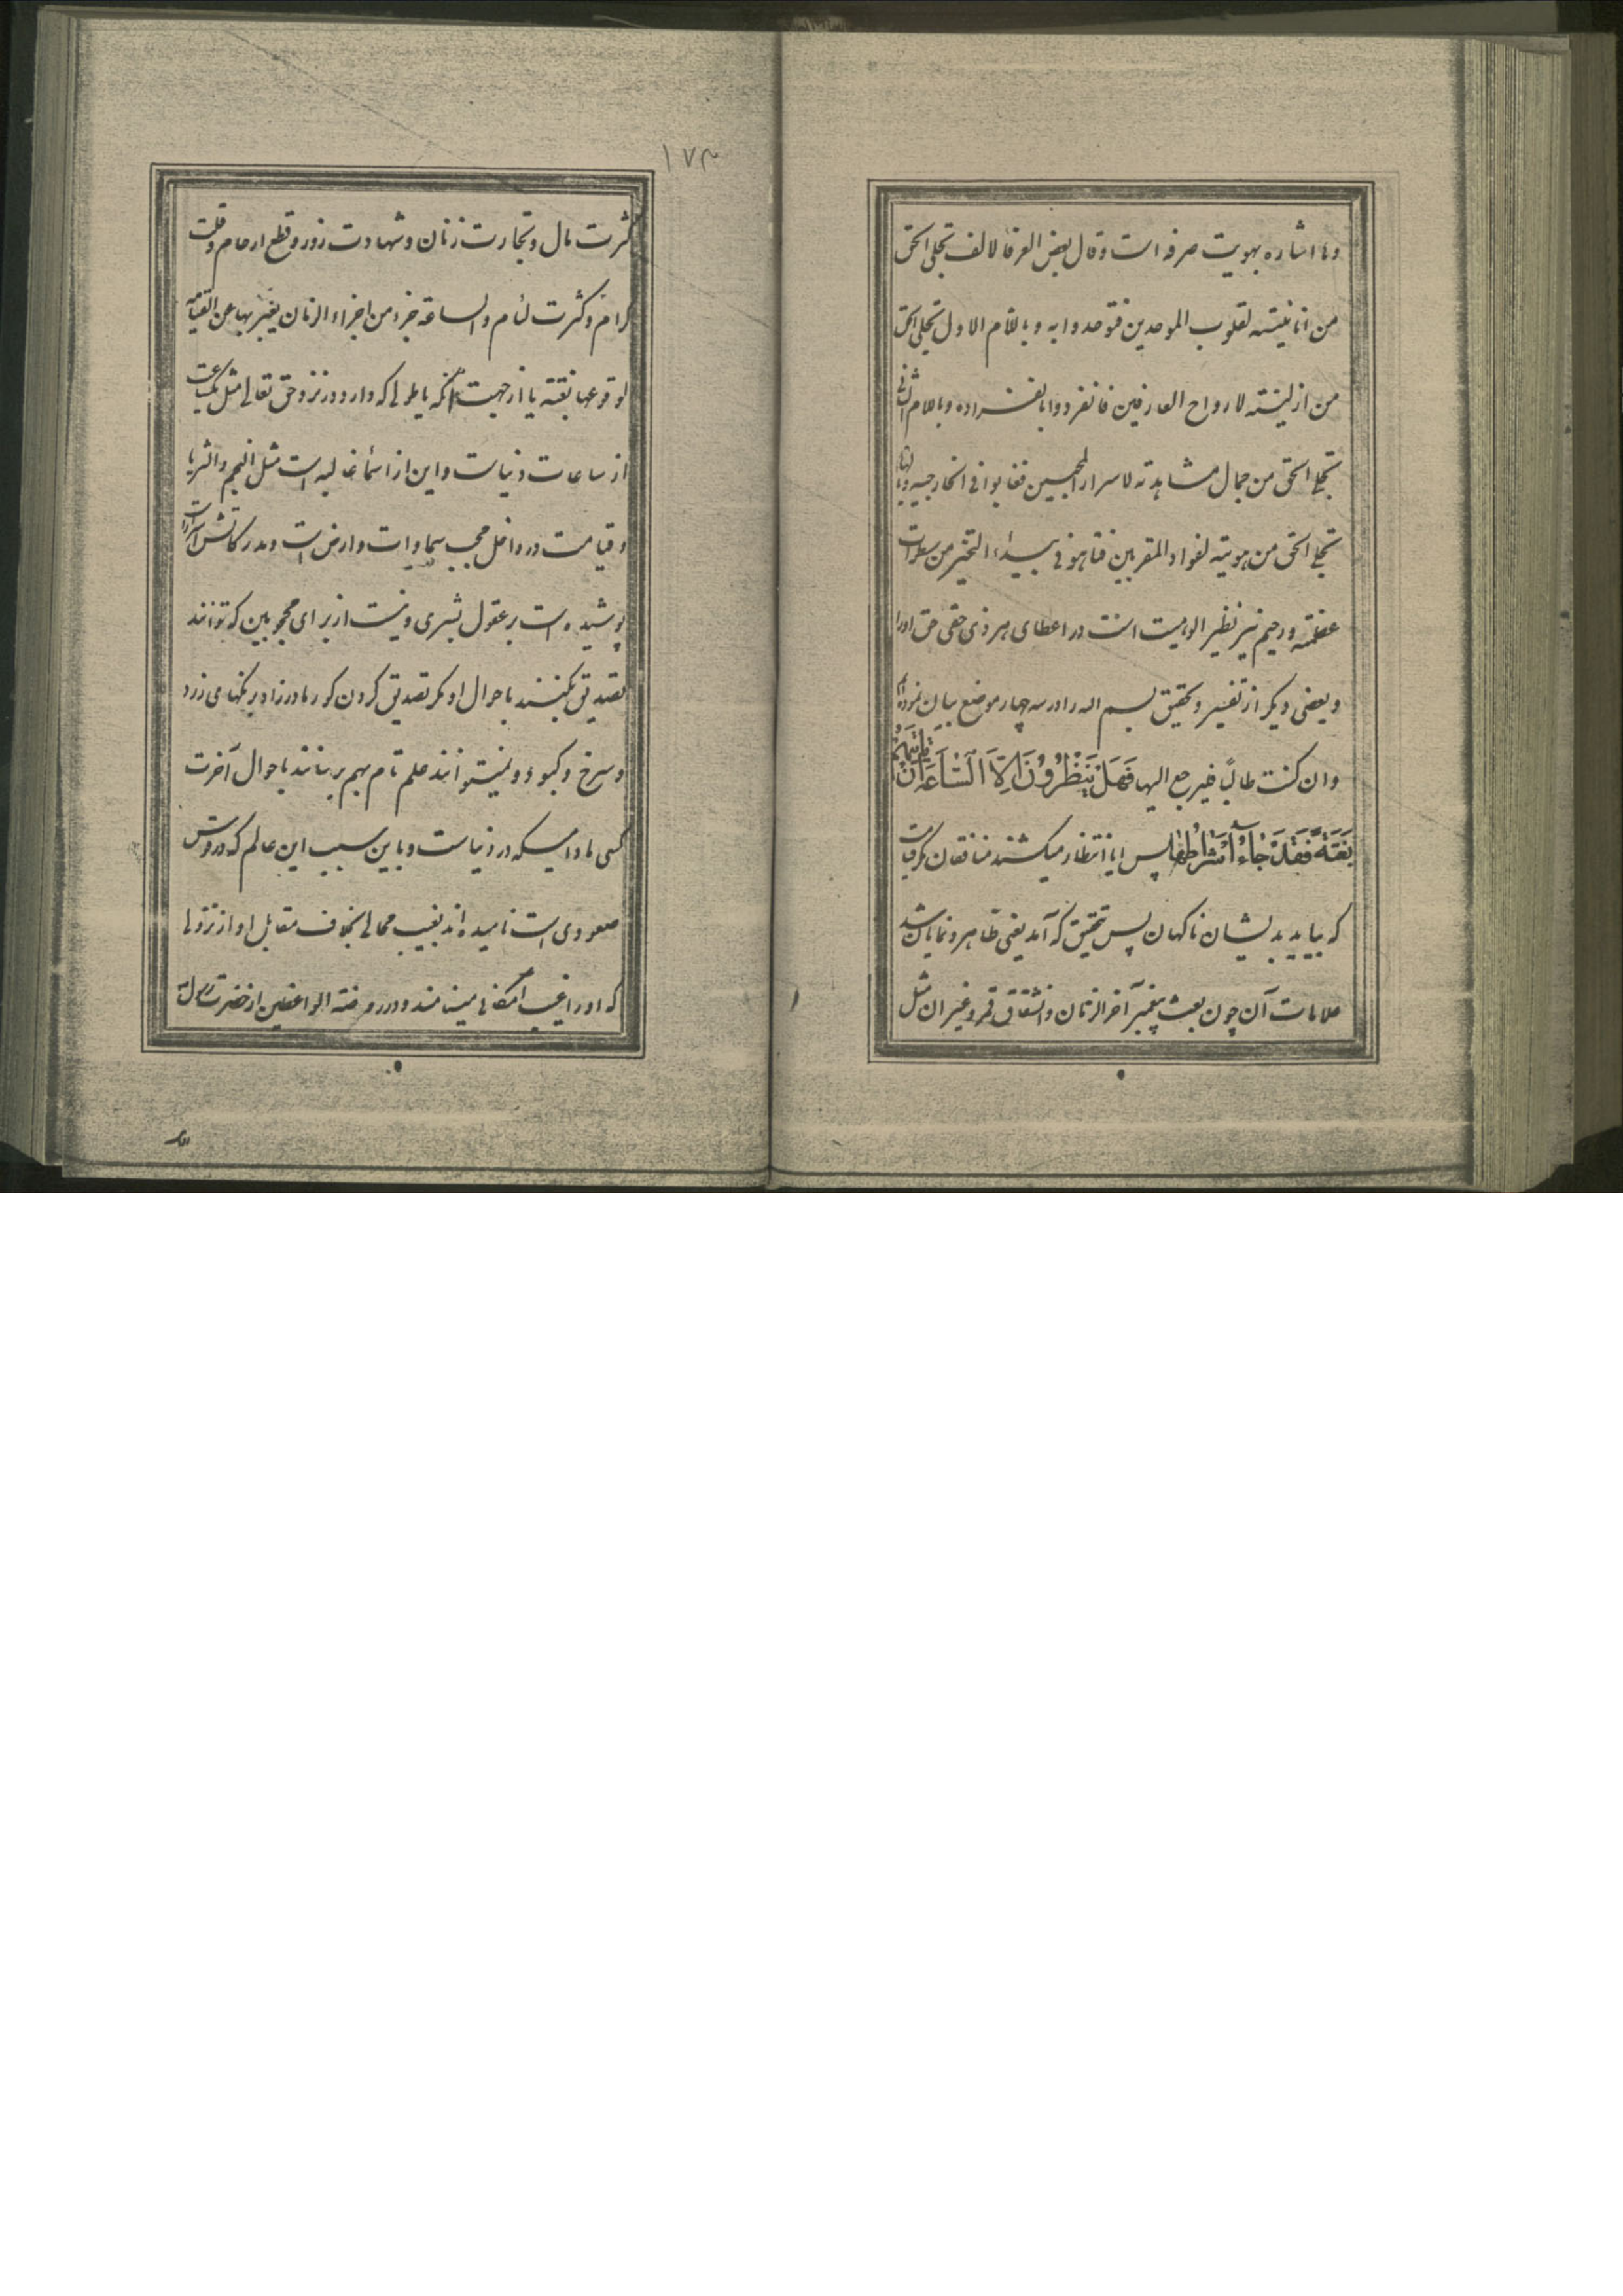 وها اشاره بهویت صرفه است وقال بعض العرفا لالف تجلی الحق
من انانیته لقلوب الموحدین فتوحدوا به وباللام الاول تجلی الحق
من ازلیته لارواح العارفین فانفردوا بانفراده وباللام الثانی
تجلی الحق من جمال مشاهدته لاسرار المحبین فغابوا فی وبالهاء
تجلی الحق من هویته لفواد المقربین فتاهو فی بیداء التحیر من سطوات
عظمته ورحیم نیز نظیر الوهیت است در اعطای هر ذی حقی حق اورا
وبعضی دیگر از تفسیر وتحقیق بسم اله را در سه چهار موضع بیان نموده‌ام
وان کنت طالبًا فیرجع الیها فَهَلْ یَنْظُرُوُنَ اِلّاَ الَسّٰاعَةَ اَنْ تَاْتِیَهُمْ
بَغْتَةً فَقَدْ جٰاءَ اَشْراٰطُهٰا پس ایا انتظار میکشند منافقان مگر قیامت
که بیاید بدیشان ناکهان پس بتحقیق که آمد یعنی ظاهر ونمایان شد
علامات آن چون بعث پیغمبر آخر الزمان وانشقاق قمر وغیر ان مثل
۱۷۳
کثرت مال وتجارت زنان وشهادت زور وقطع ارحام وقلت
کرام وکثرت لئام والساعة جزء من اجزاء الزمان یعبر بها عن القیامة
لوقوعها بغتة یا از جهت آنکه یا طولی که دارد در نزد حق تعالی مثل یکساعت
از ساعات دنیاست واین از اسماء غالبه است مثل النجم والثریا
وقیامت در داخل حجب سماوات وارض است ومدرکاتش
پوشیده است بر عقول بشری ونیست از برای محجوبین که توانند
تصدیق بکنند باحوال او مگر تصدیق کردن کور مادرزاد برنکهای زرد
وسرخ وکبود ونمیتوانند علم تام بهم برسانند باحوال آخرت
کسی مادامیکه در دنیاست وباین سبب این عالم که در وش
صعودی است نامیده‌اند بغیب محالی بخلاف مقابل او از نزولی
که اورا غیب امکانی مینامند ودر روضة الواعظین از حضرت رسول